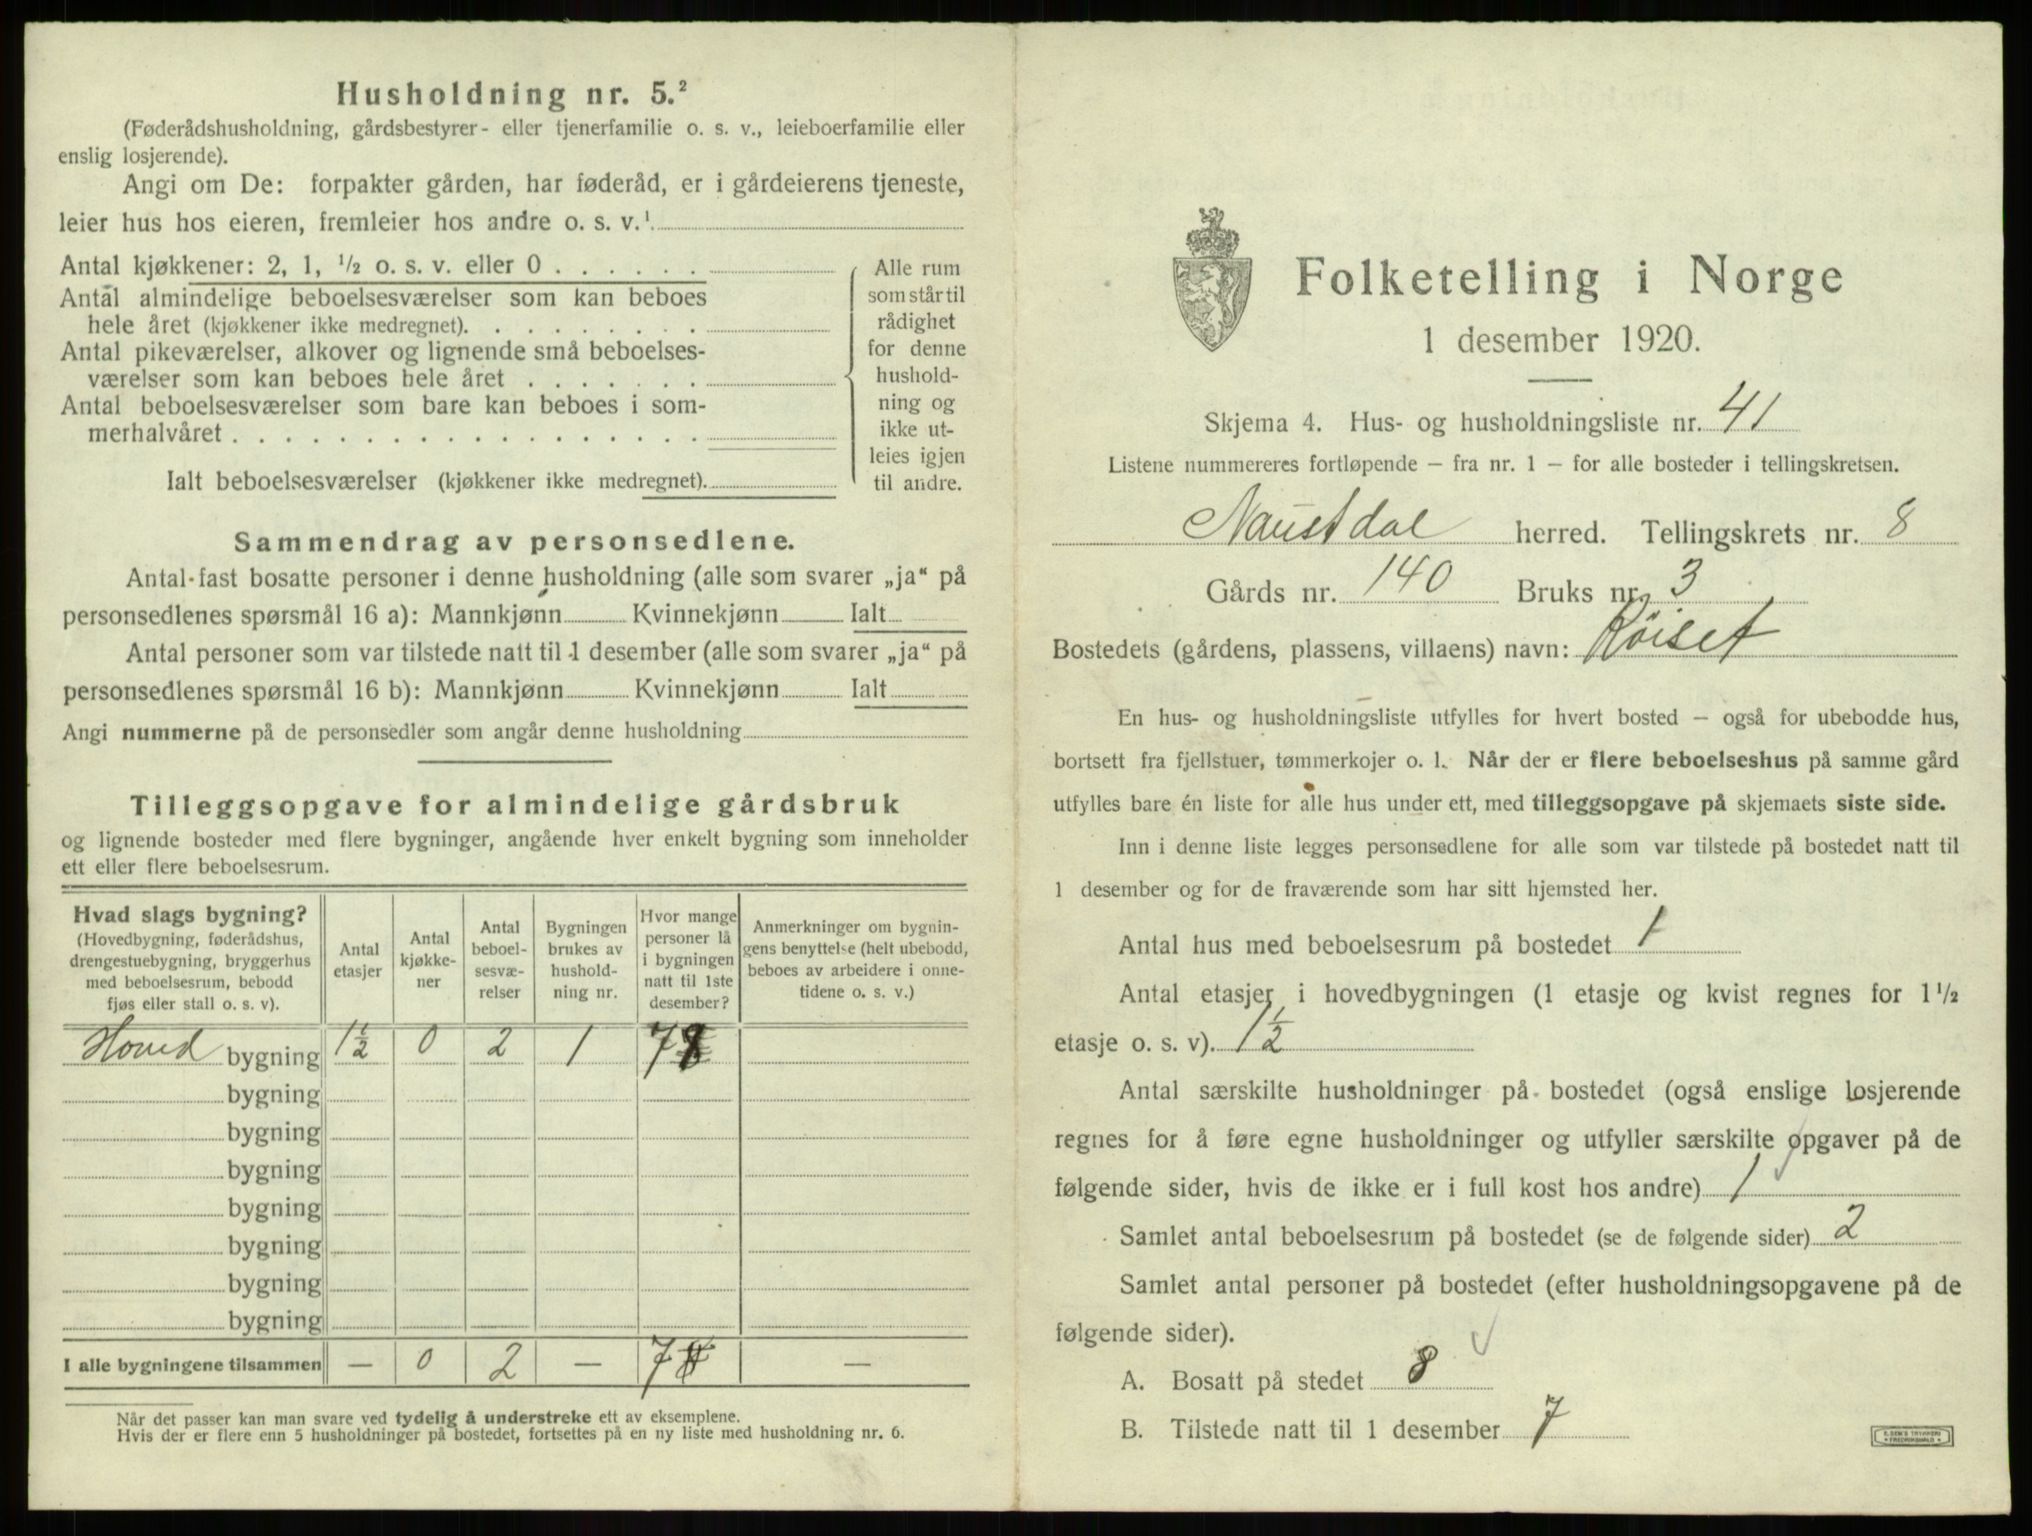 Husholdning nr. 5.²
(Føderådshusholdning, gårdsbestyrer- eller tjenerfamilie o. s. v., leieboerfamilie eller
enslig losjerende).
Angi om De: forpakter gården, har føderåd, er i gårdeierens tjeneste,
leier hus hos eieren, fremleier hos andre o. s. v.¹
Antal kjøkkener: 2, 1, ½ o. s. v. eller 0 . . . . . .
Antal almindelige beboelsesværelser som kan beboes
hele året (kjøkkener ikke medregnet). . . . . . . . .
Antal pikeværelser, alkover og lignende små beboelses-
værelser som kan beboes hele året . . . . . . .
Antal beboelsesværelser som bare kan beboes i som-
merhalvåret . . . . . . . . . . . . . . . . . .
Ialt beboelsesværelser (kjøkkener ikke medregnet).
Alle rum
som står til
rådighet
for denne
hushold-
ning og
ikke ut-
leies igjen
til andre.
Sammendrag av personsedlene.
Antal fast bosatte personer i denne husholdning (alle som svarer „ja“ på
personsedlenes spørsmål 16 a): Mannkjønn Kvinnekjønn Ialt
Antal personer som var tilstede natt til 1 desember (alle som svarer „ja“ på
personsedlenes spørsmål 16 b): Mannkjønn Kvinnekjønn Ialt
Angi nummerne på de personsedler som angår denne husholdning
Tilleggsopgave for almindelige gårdsbruk
og lignende bosteder med flere bygninger, angående hver enkelt bygning som inneholder
ett eller flere beboelsesrum.
Hvad slags bygning?
(Hovedbygning, føderådshus,
drengestuebygning, bryggerhus
med beboelsesrum, bebodd
fjøs eller stall o. s. v).
Antal
etasjer
Antal
kjøkke-
ner
Antal
beboel-
sesvæ-
relser
Bygningen
brukes av
hushold-
ning nr.
Hvor mange
personer lå
i bygningen
natt til 1ste
desember?
Anmerkninger om bygnin-
gens benyttelse (helt ubebodd,
beboes av arbeidere i onne-
tidene o. s. v.)
Hoved bygning 1½ 0 2 1 7 8
bygning
bygning
bygning
bygning
bygning
bygning
bygning
I alle bygningene tilsammen — 0 2 — 7 8 —
Når det passer kan man svare ved tydelig å understreke ett av eksemplene.
Hvis der er flere enn 5 husholdninger på bostedet, fortsettes på en ny liste med husholdning nr. 6.
Folketelling i Norge
1 desember 1920.
Skjema 4. Hus- og husholdningsliste nr. 41
Listene nummereres fortløpende – fra nr. 1 – for alle bosteder i tellingskretsen.
Naustdal herred. Tellingskrets nr. 8
Gårds nr. 140 Bruks nr. 3
Bostedets (gårdens, plassens, villaens) navn: Röiset
En hus- og husholdningsliste utfylles for hvert bosted – også for ubebodde hus,
bortsett fra fjellstuer, tømmerkojer o. l. Når der er flere beboelseshus på samme gård
utfylles bare én liste for alle hus under ett, med tilleggsopgave på skjemaets siste side.
Inn i denne liste legges personsedlene for alle som var tilstede på bostedet natt til
1 desember og for de fraværende som har sitt hjemsted her.
Antal hus med beboelsesrum på bostedet 1
Antal etasjer i hovedbygningen (1 etasje og kvist regnes for 1½
etasje o. s. v). 1½
Antal særskilte husholdninger på bostedet (også enslige losjerende
regnes for å føre egne husholdninger og utfyller særskilte opgaver på de
følgende sider, hvis de ikke er i full kost hos andre) 1
Samlet antal beboelsesrum på bostedet (se de følgende sider) 2
Samlet antal personer på bostedet (efter husholdningsopgavene på de
følgende sider).
A. Bosatt på stedet 8
B. Tilstede natt til 1 desember 7